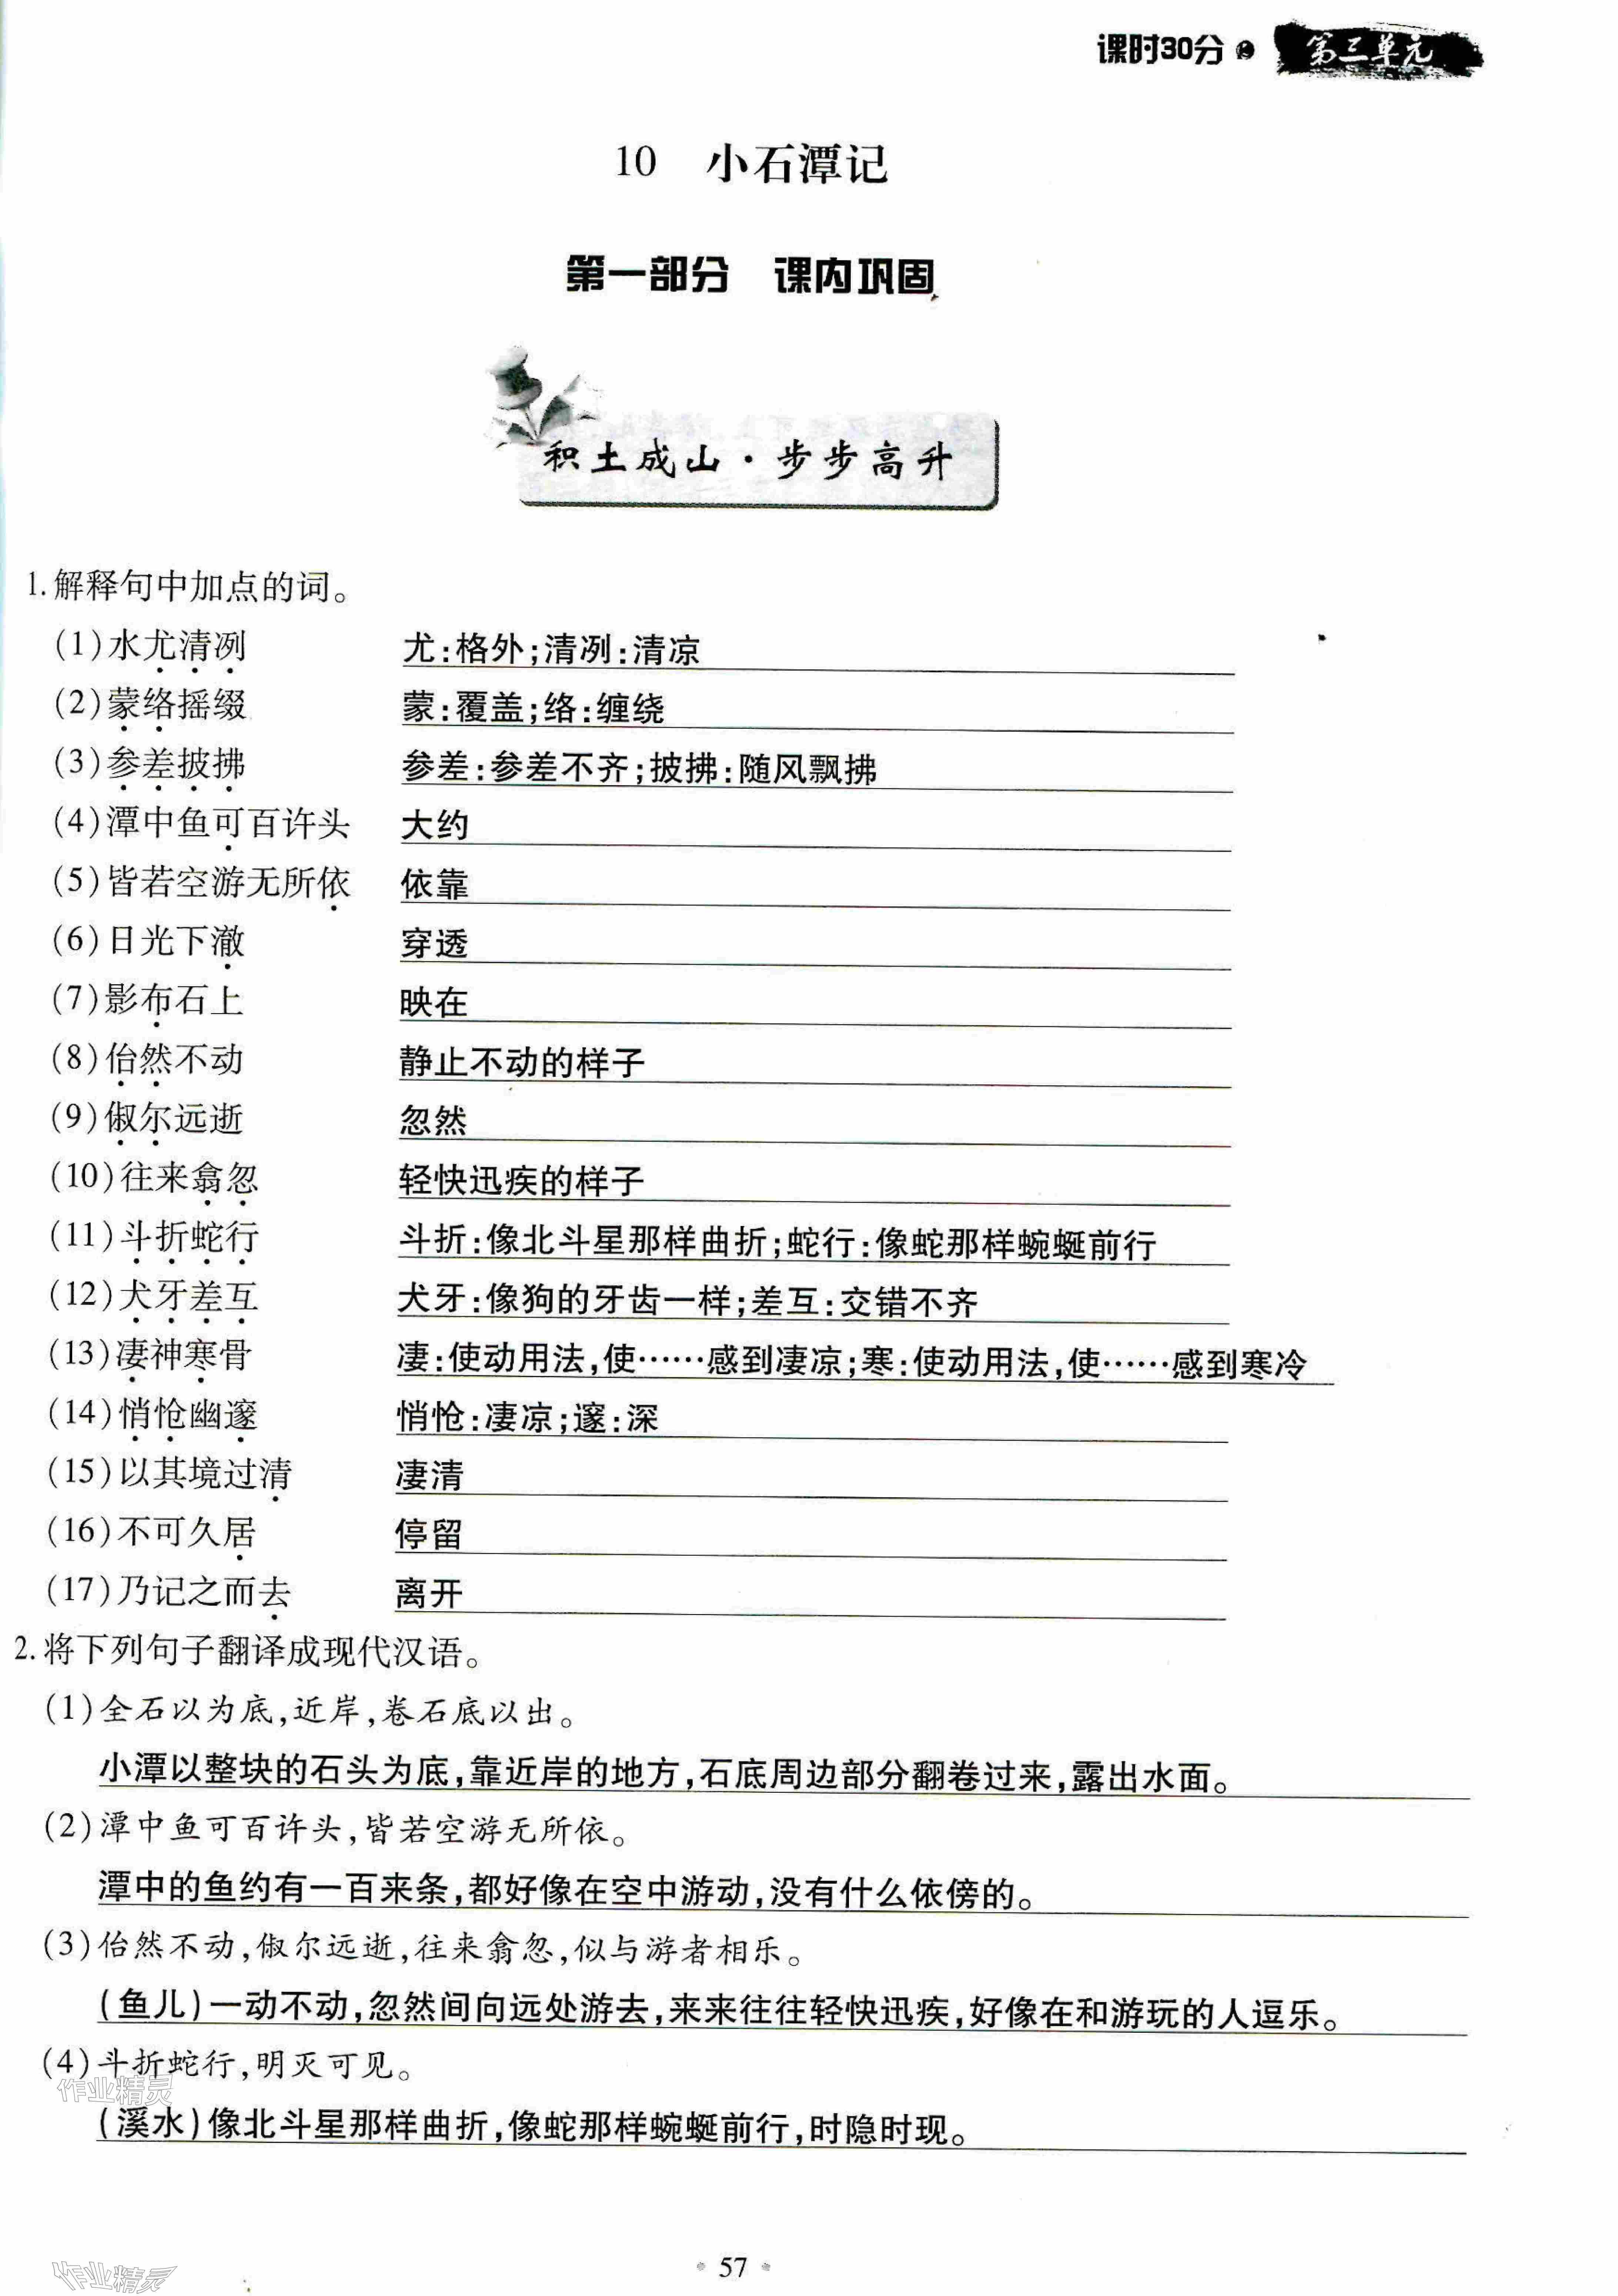 课时30分 第三单元
10 小石潭记
第一部分 课内巩固
积土成山·步步高升
1.解释句中加点的词。
(1)水尤清冽 尤:格外;清冽:清凉
(2)蒙络摇缀 蒙:覆盖;络:缠绕
(3)参差披拂 参差:参差不齐;披拂:随风飘拂
(4)潭中鱼可百许头 大约
(5)皆若空游无所依 依靠
(6)日光下澈 穿透
(7)影布石上 映在
(8)佁然不动 静止不动的样子
(9)俶尔远逝 忽然
(10)往来翕忽 轻快迅疾的样子
(11)斗折蛇行 斗折:像北斗星那样曲折;蛇行:像蛇那样蜿蜒前行
(12)犬牙差互 犬牙:像狗的牙齿一样;差互:交错不齐
(13)凄神寒骨 凄:使动用法,使……感到凄凉;寒:使动用法,使……感到寒冷
(14)悄怆幽邃 悄怆:凄凉;邃:深
(15)以其境过清 凄清
(16)不可久居 停留
(17)乃记之而去 离开
2.将下列句子翻译成现代汉语。
(1)全石以为底,近岸,卷石底以出。
小潭以整块的石头为底,靠近岸的地方,石底周边部分翻卷过来,露出水面。
(2)潭中鱼可百许头,皆若空游无所依。
潭中的鱼约有一百来条,都好像在空中游动,没有什么依傍的。
(3)佁然不动,俶尔远逝,往来翕忽,似与游者相乐。
(鱼儿)一动不动,忽然间向远处游去,来来往往轻快迅疾,好像在和游玩的人逗乐。
(4)斗折蛇行,明灭可见。
作业精灵
(溪水)像北斗星那样曲折,像蛇那样蜿蜒前行,时隐时现。
57
作业精灵